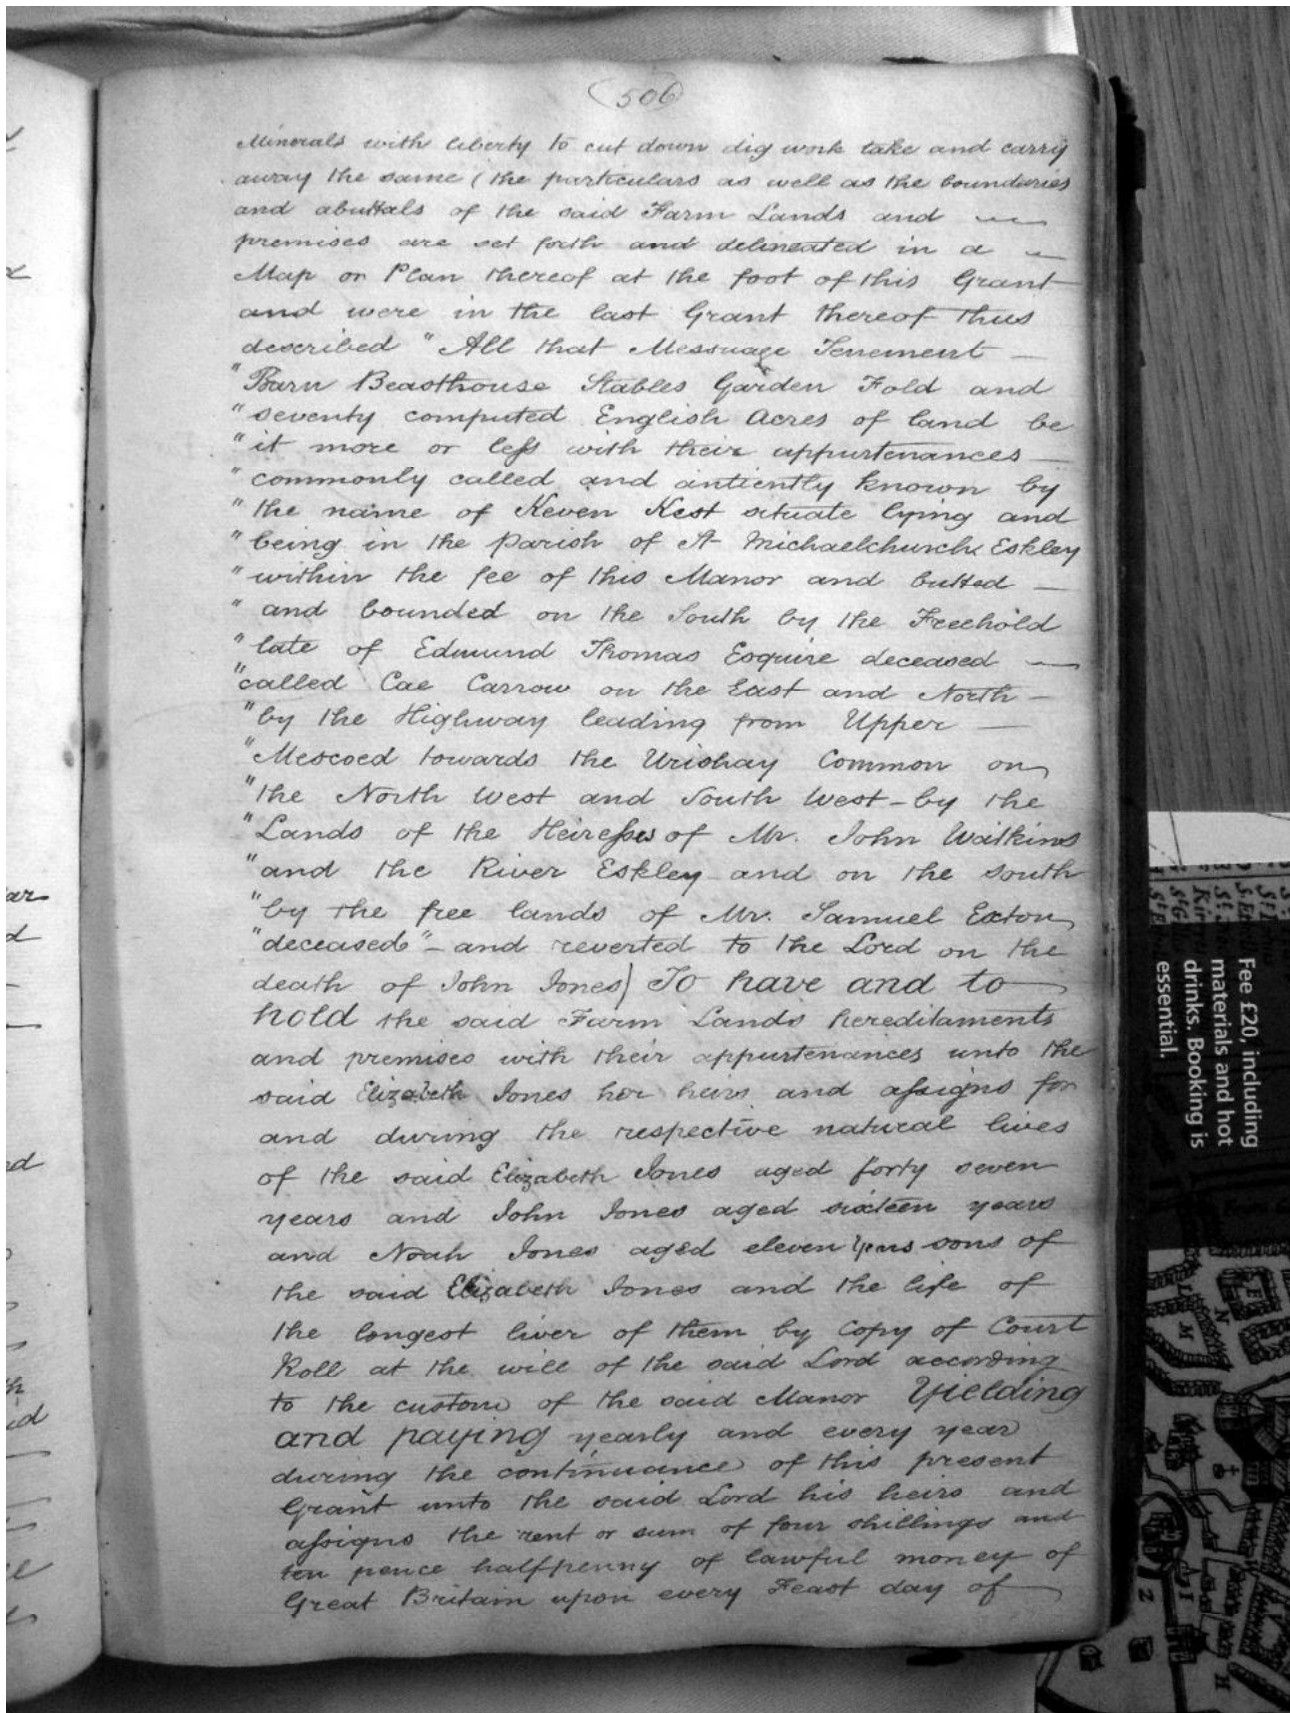 (506)
Minerals with liberty to cut down dig work take and carry
away the same (the particulars as well as the boundaries
and abuttals of the said Farm Lands and
premises are set forth and delineated in a
Map or Plan thereof at the foot of this Grant
and were in the last Grant thereof thus
described "All that Messuage Tenement —
"Barn Beasthouse Stables Garden Fold and
"seventy computed English Acres of land be
"it more or less with their appurtenances —
"commonly called and antiently known by
"the name of Keven Kest situate lying and
"being in the Parish of St Michaelchurch Eskley
"within the fee of this Manor and butted —
"and bounded on the South by the Freehold
"late of Edmund Thomas Esquire deceased —
"called Cae Carrow on the East and North —
"by the Highway leading from Upper —
"Mescoed towards the Urishay Common on
"the North West and South West - by the
"Lands of the Heiresses of Mr. John Watkins
"and the River Eskley and on the south
"by the free lands of Mr. Samuel Exton
"deceased" - and reverted to the Lord on the
death of John Jones) To have and to
hold the said Farm Lands hereditaments
and premises with their appurtenances unto the
said Elizabeth Jones her heirs and assigns for
and during the respective natural lives
of the said Elizabeth Jones aged forty seven
years and John Jones aged sixteen years
and Noah Jones aged eleven years sons of
the said Elizabeth Jones and the life of
the longest liver of them by Copy of Court
Roll at the will of the said Lord according
to the custom of the said Manor Yielding
and paying yearly and every year
during the continuance of this present
Grant unto the said Lord his heirs and
assigns the rent or sum of four shillings and
ten pence halfpenny of lawful money of
Great Britain upon every Feast day of
Fee £20, including
materials and hot
drinks. Booking is
essential.